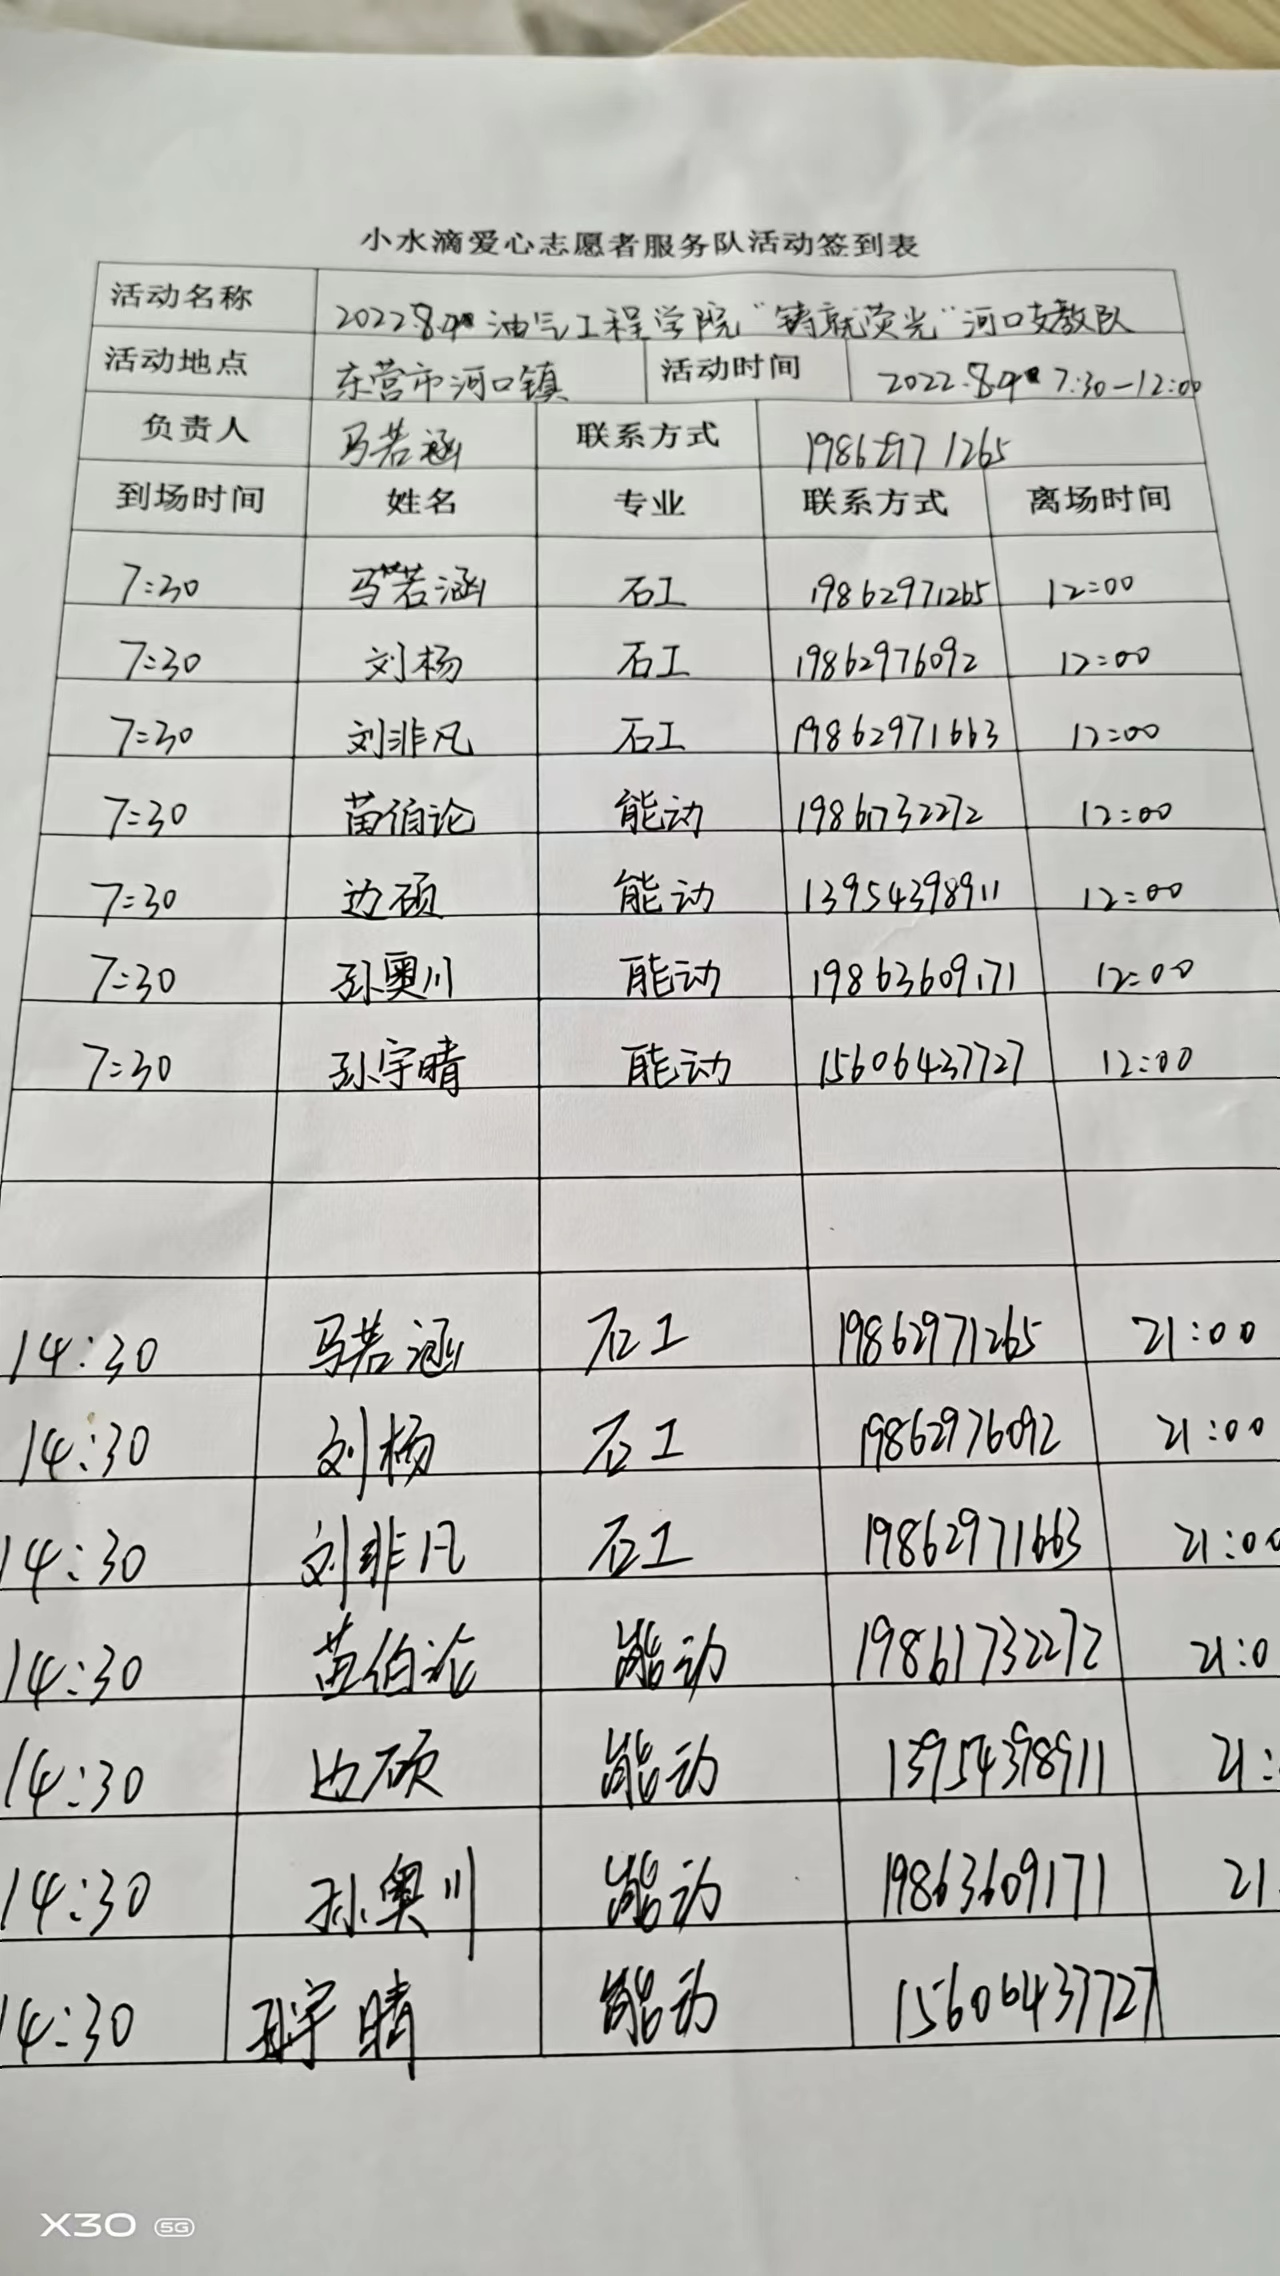 小水滴爱心志愿者服务队活动签到表
活动名称 2022.8.9 油气工程学院“铸就荧光”河口支教队
活动地点 东营市河口镇 活动时间 2022.8.9 7:30-12:00
负责人 马若涵 联系方式 19862971265
到场时间 姓名 专业 联系方式 离场时间
7:30 马若涵 石工 19862971265 12:00
7:30 刘杨 石工 19862976092 12:00
7:30 刘非凡 石工 19862971663 12:00
7:30 苗伯论 能动 19861732272 12:00
7:30 边硕 能动 13954398911 12:00
7:30 孙奥川 能动 19863609171 12:00
7:30 孙宇晴 能动 15606437727 12:00
14:30 马若涵 石工 19862971265 21:00
14:30 刘杨 石工 19862976092 21:00
14:30 刘非凡 石工 19862971663 21:00
14:30 苗伯论 能动 19861732272 21:0
14:30 边硕 能动 13954398911 21:
14:30 孙奥川 能动 19863609171 21
14:30 孙宇晴 能动 15606437727
X30 5G